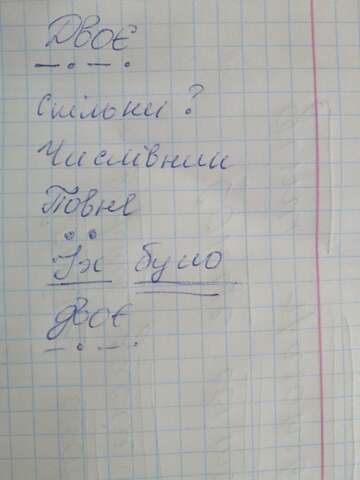 Двоє
Скільки?
Числівник
Повне
Їх було
двоє